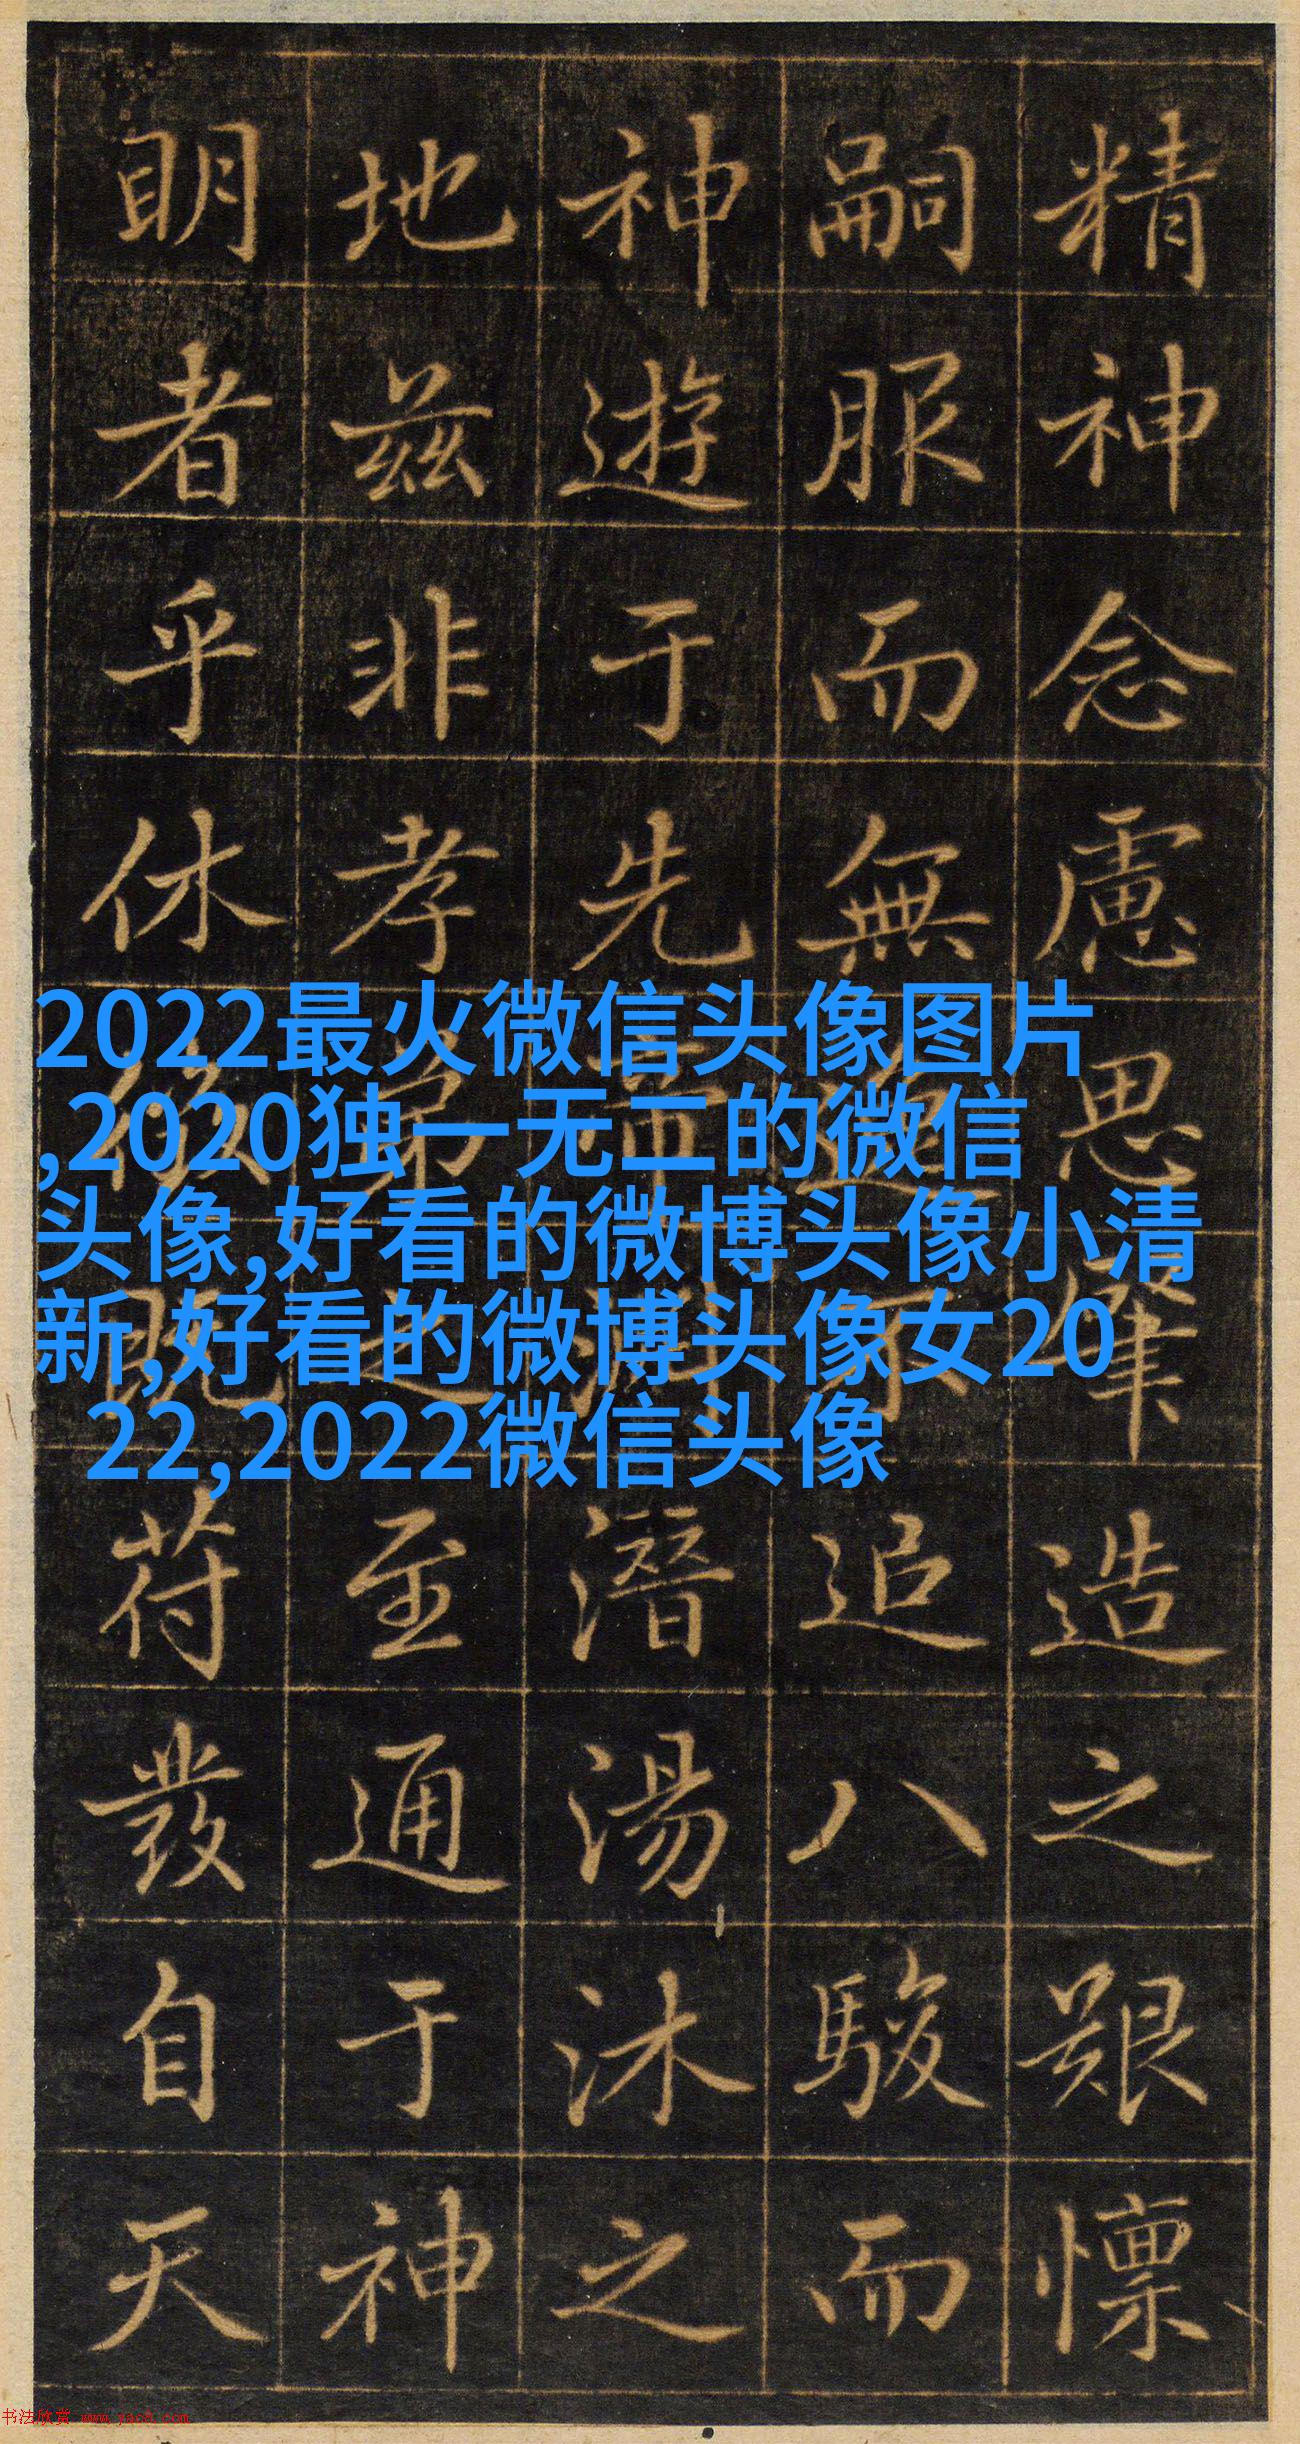 精神念慮思肇造之艱懍
嗣服而無追八駿而
神遊于先潛湯沐之
地茲非孝弟之至通于神
明者乎休既苻發自天
2022最火微信头像图片
,2020独一无二的微信
头像,好看的微博头像小清
新,好看的微博头像女20
22,2022微信头像
书法欣赏 www.yac8.com